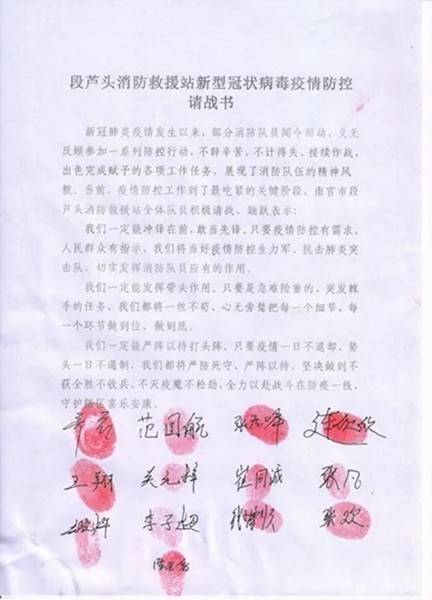 段芦头消防救援站新型冠状病毒疫情防控
请战书
新冠肺炎疫情发生以来，部分消防队员闻令而动、义无
反顾参加一系列防控行动，不辞辛苦、不计得失、接续作战，
出色完成赋予的各项工作任务，展现了消防队伍的精神风
貌。当前，疫情防控工作到了最吃紧的关键阶段，南宫市段
芦头消防救援站全体队员积极请战、踊跃表示：
我们一定能冲锋在前、敢当先锋。只要疫情防控有需求，
人民群众有指示，我们将当好疫情防控生力军、抗击肺炎突
击队，切实发挥消防队员应有的作用。
我们一定能发挥带头作用。只要是急难险重的、突发棘
手的任务，我们都将一丝不苟、心无旁骛把每一个细节、每
一个环节做到位、做到底。
我们一定能严阵以待打头阵。只要疫情一日不退却、势
头一日不遏制，我们都将严防死守、严阵以待，坚决做到不
获全胜不收兵，不灭疫魔不松劲，全力以赴战斗在防疫一线，
守护辖区喜乐安康。
范国航
王翔 关光辉 崔同诚 张凡
李子超 张欢